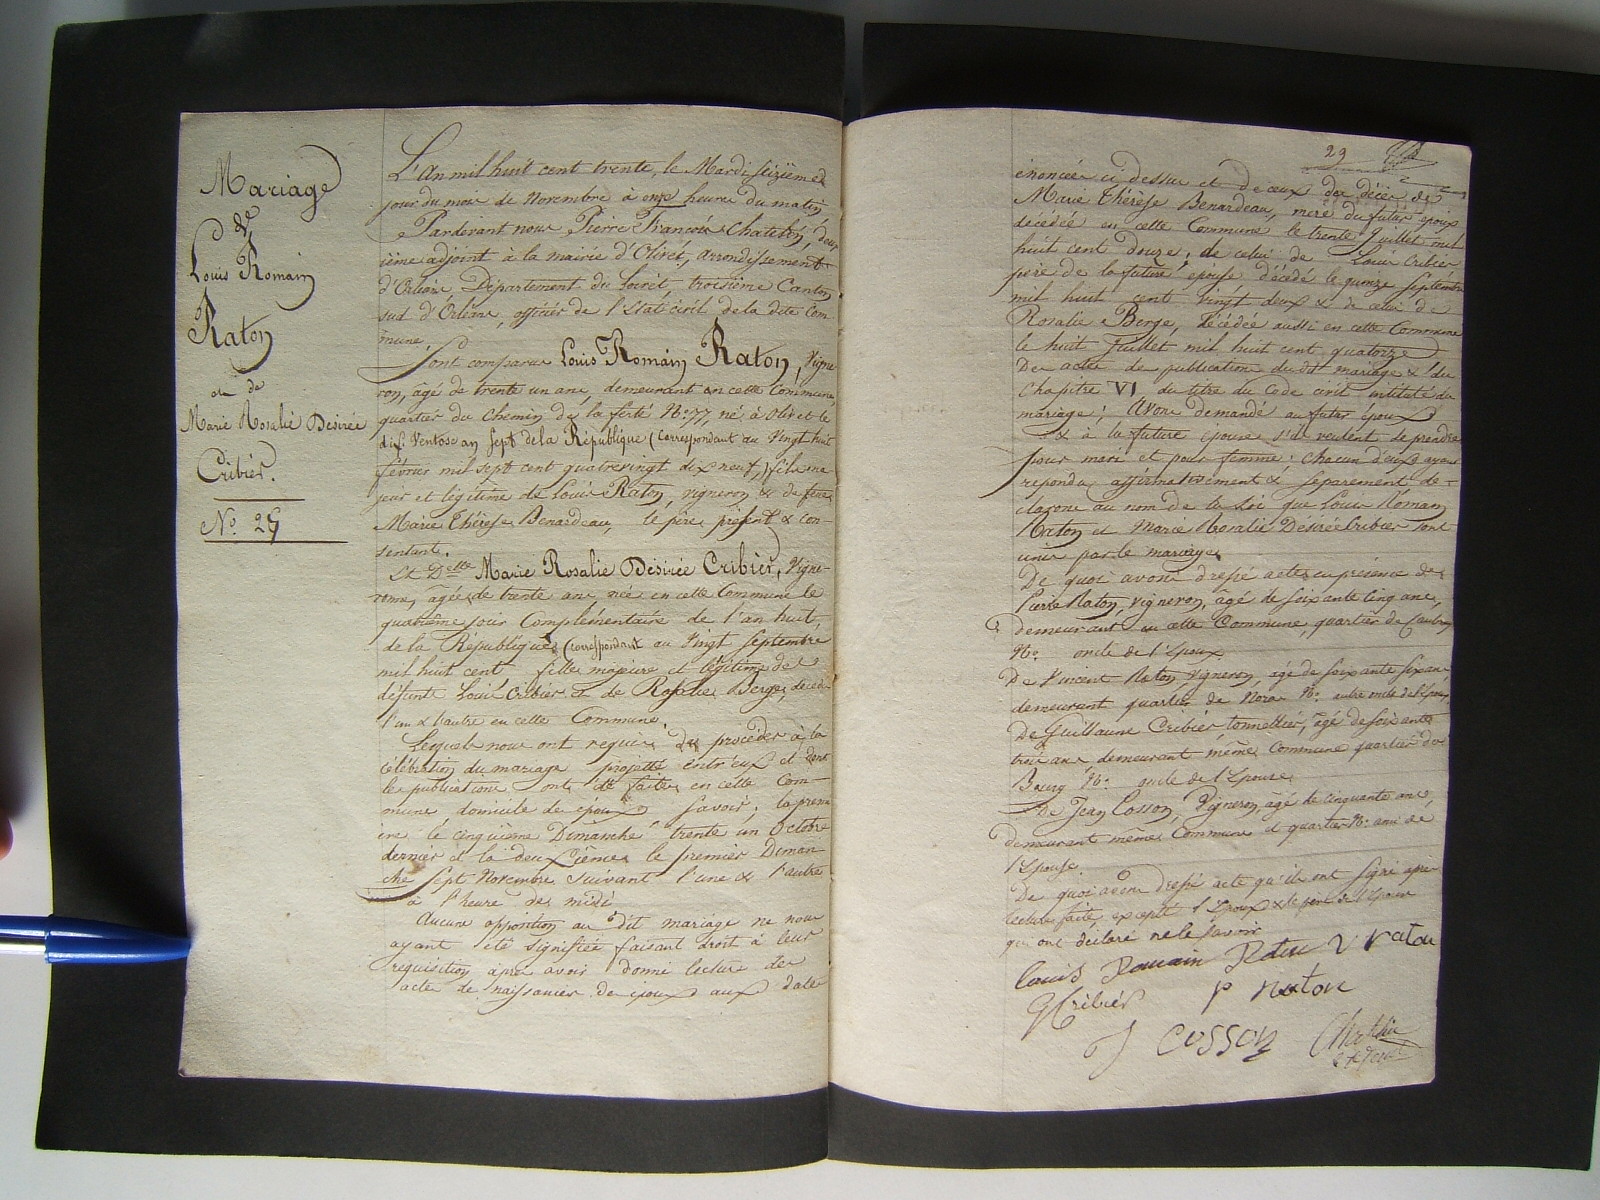 Mariage
de
Louis Romain
Raton
et de
Marie Rosalie Desirée
Cribier.
N.° 25
L'An mil huit cent trente, le Mardi seizieme
jour du mois de Novembre à onze heures du matin
Pardevant nous Pierre François Chatelin, deux
ième adjoint à la mairie d'Olivet, arrondissement
d'Orléans Département du Loiret, troisième Canton
sud d'Orléans, officier de l'Etat civil de la dite Com
mune.
Sont comparus Louis Romain Raton, Vigne
ron, âgé de trente un ans, demeurant en cette Commune,
quartier du Chemin de la ferté N.° 77, né à Olivet le
dix Ventose an sept de la République (correspondant au Vingt huit
février mil sept cent quatrevingt dix neuf,) fils ma
jeur et légitime de Louis Raton, vigneron & de feue
Marie Thérèse Benardeau, le père présent & con-
sentant.
Et Delle Marie Rosalie Desirée Cribier, Vigne-
ronne, âgée de trente ans née en cette Commune le
quatrième jour Complémentaire de l'an huit,
de la République (correspondant au Vingt Septembre
mil huit cent fille majeure et légitime de
défunts Louis Cribier & de Rosalie Berge, décédés
l'un & l'autre en cette Commune.
Lesquels nous ont requis de procéder à la
célébration du mariage projetté entr'eux et dont
les publications ont été faites en cette Com-
mune domicile des époux savoir: la premi
ère le cinquième Dimanche trente un Octobre
dernier et la deuxième le premier Diman
che sept Novembre suivant l'une & l'autre
à l'heure de midi
Aucune opposition au dit mariage ne nous
ayant été signifiée faisant droit à leur
requisition après avoir donné lecture des
actes de naissances des époux aux dates
29
énoncées ci dessus et de ceux des décès de
Marie Thérèse Benardeau, mère du futur époux
décédée en cette Commune le trente Juillet mil
huit cent douze, de celui de Louis Cribier
père de la future épouse décédé le quinze Septembre
mil huit cent vingt deux & de celui de
Rosalie Berge, décédée aussi en cette Commune
le huit Juillet mil huit cent quatorze
Des actes de publication du dit mariage & du
Chapitre VI du titre du Code civil intitulé du
mariage; Avons demandé au futur époux
& à la future épouse s'ils veulent se prendre
pour mari et pour femme: chacun d'eux ayant
répondu affirmativement & séparement dé-
clarons au nom de la loi que Louis Romain
Raton et Marie Rosalie Desirée Cribier sont
unis par le mariage.
De quoi avons dressé acte en présence de
Pierre Raton, vigneron, âgé de soixante cinq ans,
demeurant en cette Commune, quartier de
N.° oncle de l'Epoux
De Vincent Raton, vigneron, agé de soixante six ans,
demeurant quartier de N.° autre oncle de l'époux,
De Guillaume Cribier tonnellier, âgé de soixante
trois ans, demeurant même Commune quartier du
Bourg N.° oncle de l'Epouse.
De Jean Cosson, Vigneron, âgé de cinquante ans,
demeurant même Commune et quartier N.° ami de
l'Epouse.
De quoi avons dressé acte qu'ils ont signé après
lecture faite, excepté l'Epoux & le père de l'Epoux
qui ont déclaré ne le savoir
Louis Romain Raton V raton
G Cribier P Raton
J COSSON